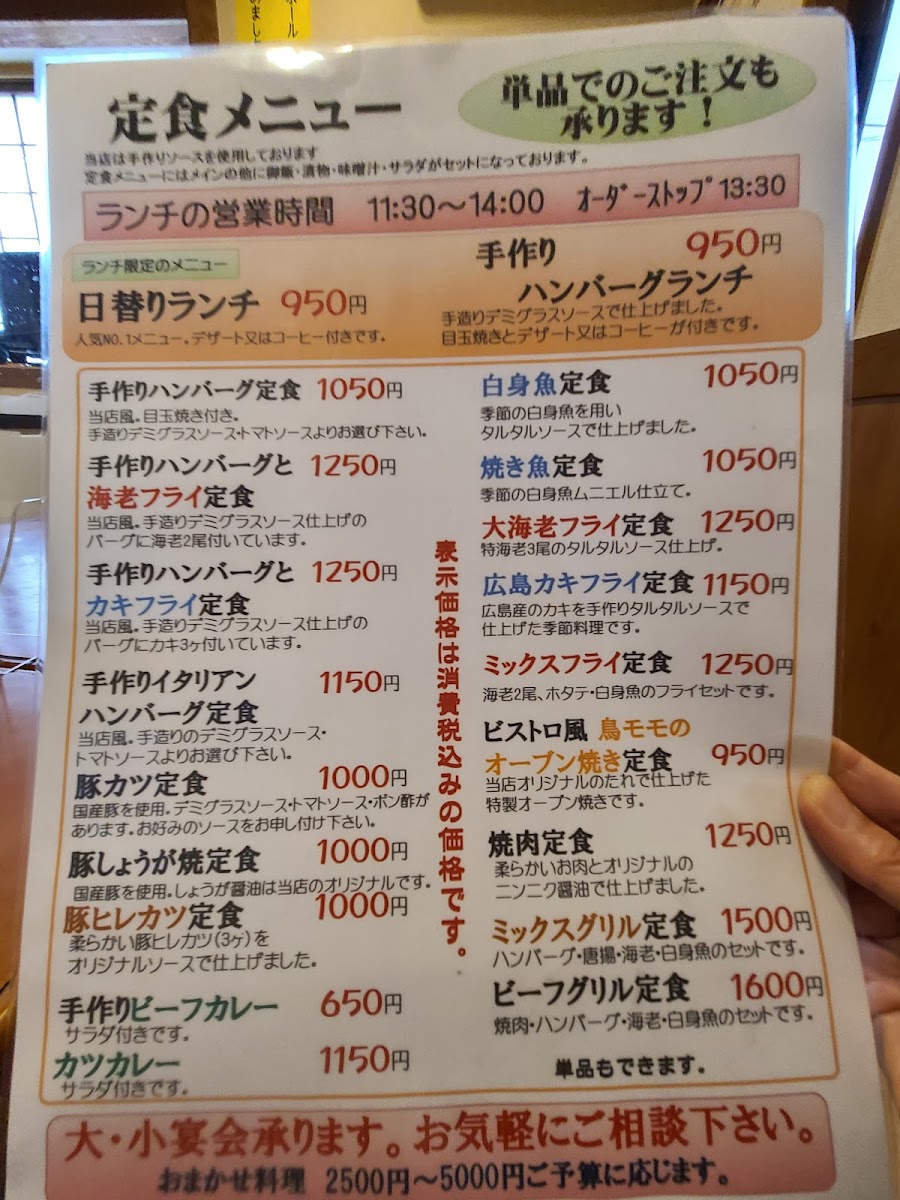 定食メニュー
単品でのご注文も
承ります！
当店は手作りソースを使用しております
定食メニューにはメインの他に御飯・漬物・味噌汁・サラダがセットになっております。
ランチの営業時間 11:30～14:00 オーダーストップ 13:30
ランチ限定のメニュー
日替りランチ 950円
人気NO.1メニュー。デザート又はコーヒー付きです。
手作り 950円
ハンバーグランチ
手造りデミグラスソースで仕上げました。
目玉焼きとデザート又はコーヒーが付きです。
手作りハンバーグ定食 1050円
当店風。目玉焼き付き。
手造りデミグラスソース・トマトソースよりお選び下さい。
手作りハンバーグと 1250円
海老フライ定食
当店風。手造りデミグラスソース仕上げの
バーグに海老2尾付いています。
手作りハンバーグと 1250円
カキフライ定食
当店風。手造りデミグラスソース仕上げの
バーグにカキ3ヶ付いています。
手作りイタリアン 1150円
ハンバーグ定食
当店風。手造りのデミグラスソース・
トマトソースよりお選び下さい。
豚カツ定食 1000円
国産豚を使用。デミグラスソース・トマトソース・ポン酢が
あります。お好みのソースをお申し付け下さい。
豚しょうが焼定食 1000円
国産豚を使用。しょうが醤油は当店のオリジナルです。
豚ヒレカツ定食 1000円
柔らかい豚ヒレカツ(3ヶ)を
オリジナルソースで仕上げました。
手作りビーフカレー 650円
サラダ付きです。
カツカレー 1150円
サラダ付きです。
表示価格は消費税込みの価格です。
白身魚定食 1050円
季節の白身魚を用い
タルタルソースで仕上げました。
焼き魚定食 1050円
季節の白身魚ムニエル仕立て。
大海老フライ定食 1250円
特海老3尾のタルタルソース仕上げ。
広島カキフライ定食 1150円
広島産のカキを手作りタルタルソースで
仕上げた季節料理です。
ミックスフライ定食 1250円
海老2尾、ホタテ・白身魚のフライセットです。
ビストロ風 鳥モモの
オーブン焼き定食 950円
当店オリジナルのたれで仕上げた
特製オーブン焼きです。
焼肉定食 1250円
柔らかいお肉とオリジナルの
ニンニク醤油で仕上げました。
ミックスグリル定食 1500円
ハンバーグ・唐揚・海老・白身魚のセットです。
ビーフグリル定食 1600円
焼肉・ハンバーグ・海老・白身魚のセットです。
単品もできます。
大・小宴会承ります。お気軽にご相談下さい。
おまかせ料理 2500円～5000円ご予算に応じます。